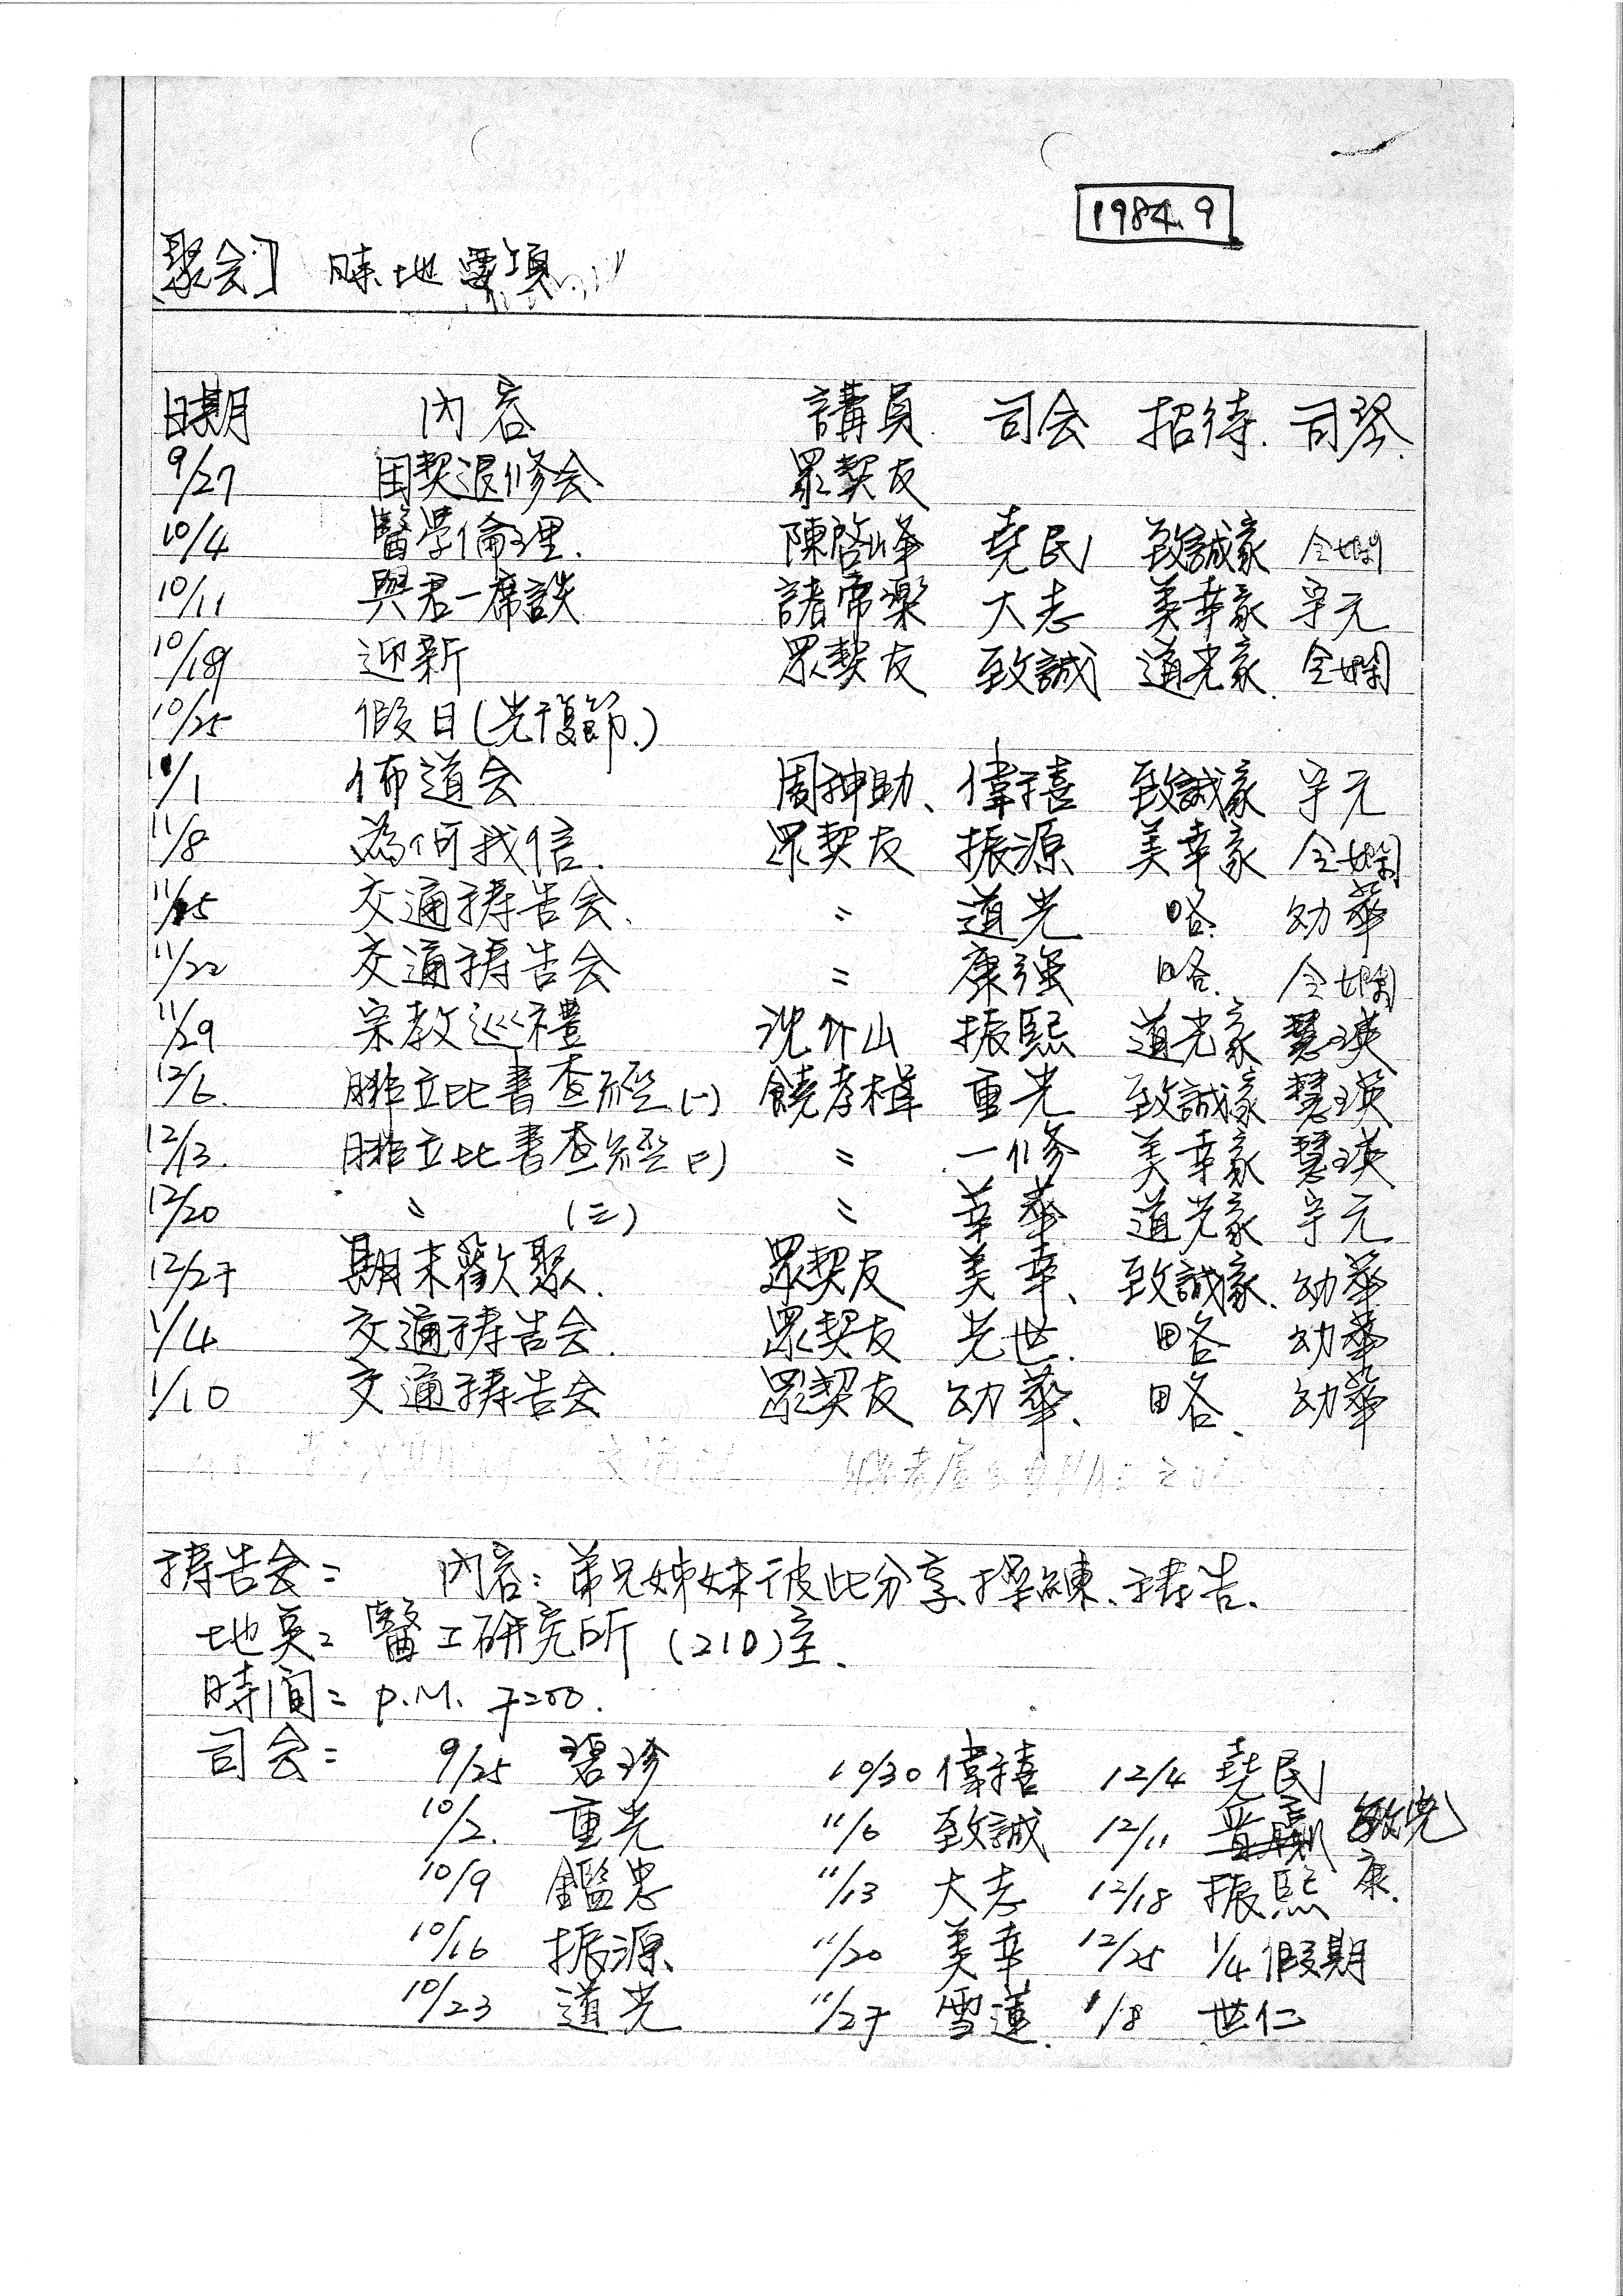 1984.9
[聚会] 時地要項
日期 內容 講員 司会 招待 司琴
9/27 团契退修会 眾契友
10/4 醫學倫理 陳啓峰 堯民 致誠家 令嫻
10/11 與君一席談 諸常樂 大志 美幸家 守元
10/18 迎新 眾契友 致誠 道光家 令嫻
10/25 假日(光復節)
11/1 佈道会 周神助 偉禧 致誠家 守元
11/8 為何我信 眾契友 振源 美幸家 令嫻
11/15 交通禱告会 〃 道光 略 幼華
11/22 交通禱告会 〃 康强 略 令嫻
11/29 宗教巡禮 沈介山 振熙 道光家 慧瑛
12/6 腓立比書查經(一) 饒孝楫 重光 致誠家 慧瑛
12/13 腓立比書查經(二) 〃 一修 美幸家 慧瑛
12/20 〃 (三) 〃 幸華 道光家 守元
12/27 期末歡聚 眾契友 美幸 致誠家 幼華
1/4 交通禱告会 眾契友 光世 略 幼華
1/10 交通禱告会 眾契友 幼華 略 幼華
禱告会: 內容:弟兄姊妹彼此分享、操練、禱告.
地点: 醫工研究所 (210)室.
時间: P.M. 7:00.
司会: 9/25 碧珍 10/30 偉禧 12/4 堯民
10/2. 重光 11/6 致誠 12/11 敏光
10/9 鑑忠 11/13 大志 12/18 振熙 康.
10/16 振源 11/20 美幸 12/25 1/4 假期
10/23 道光 11/27 雪蓮 1/8 世仁